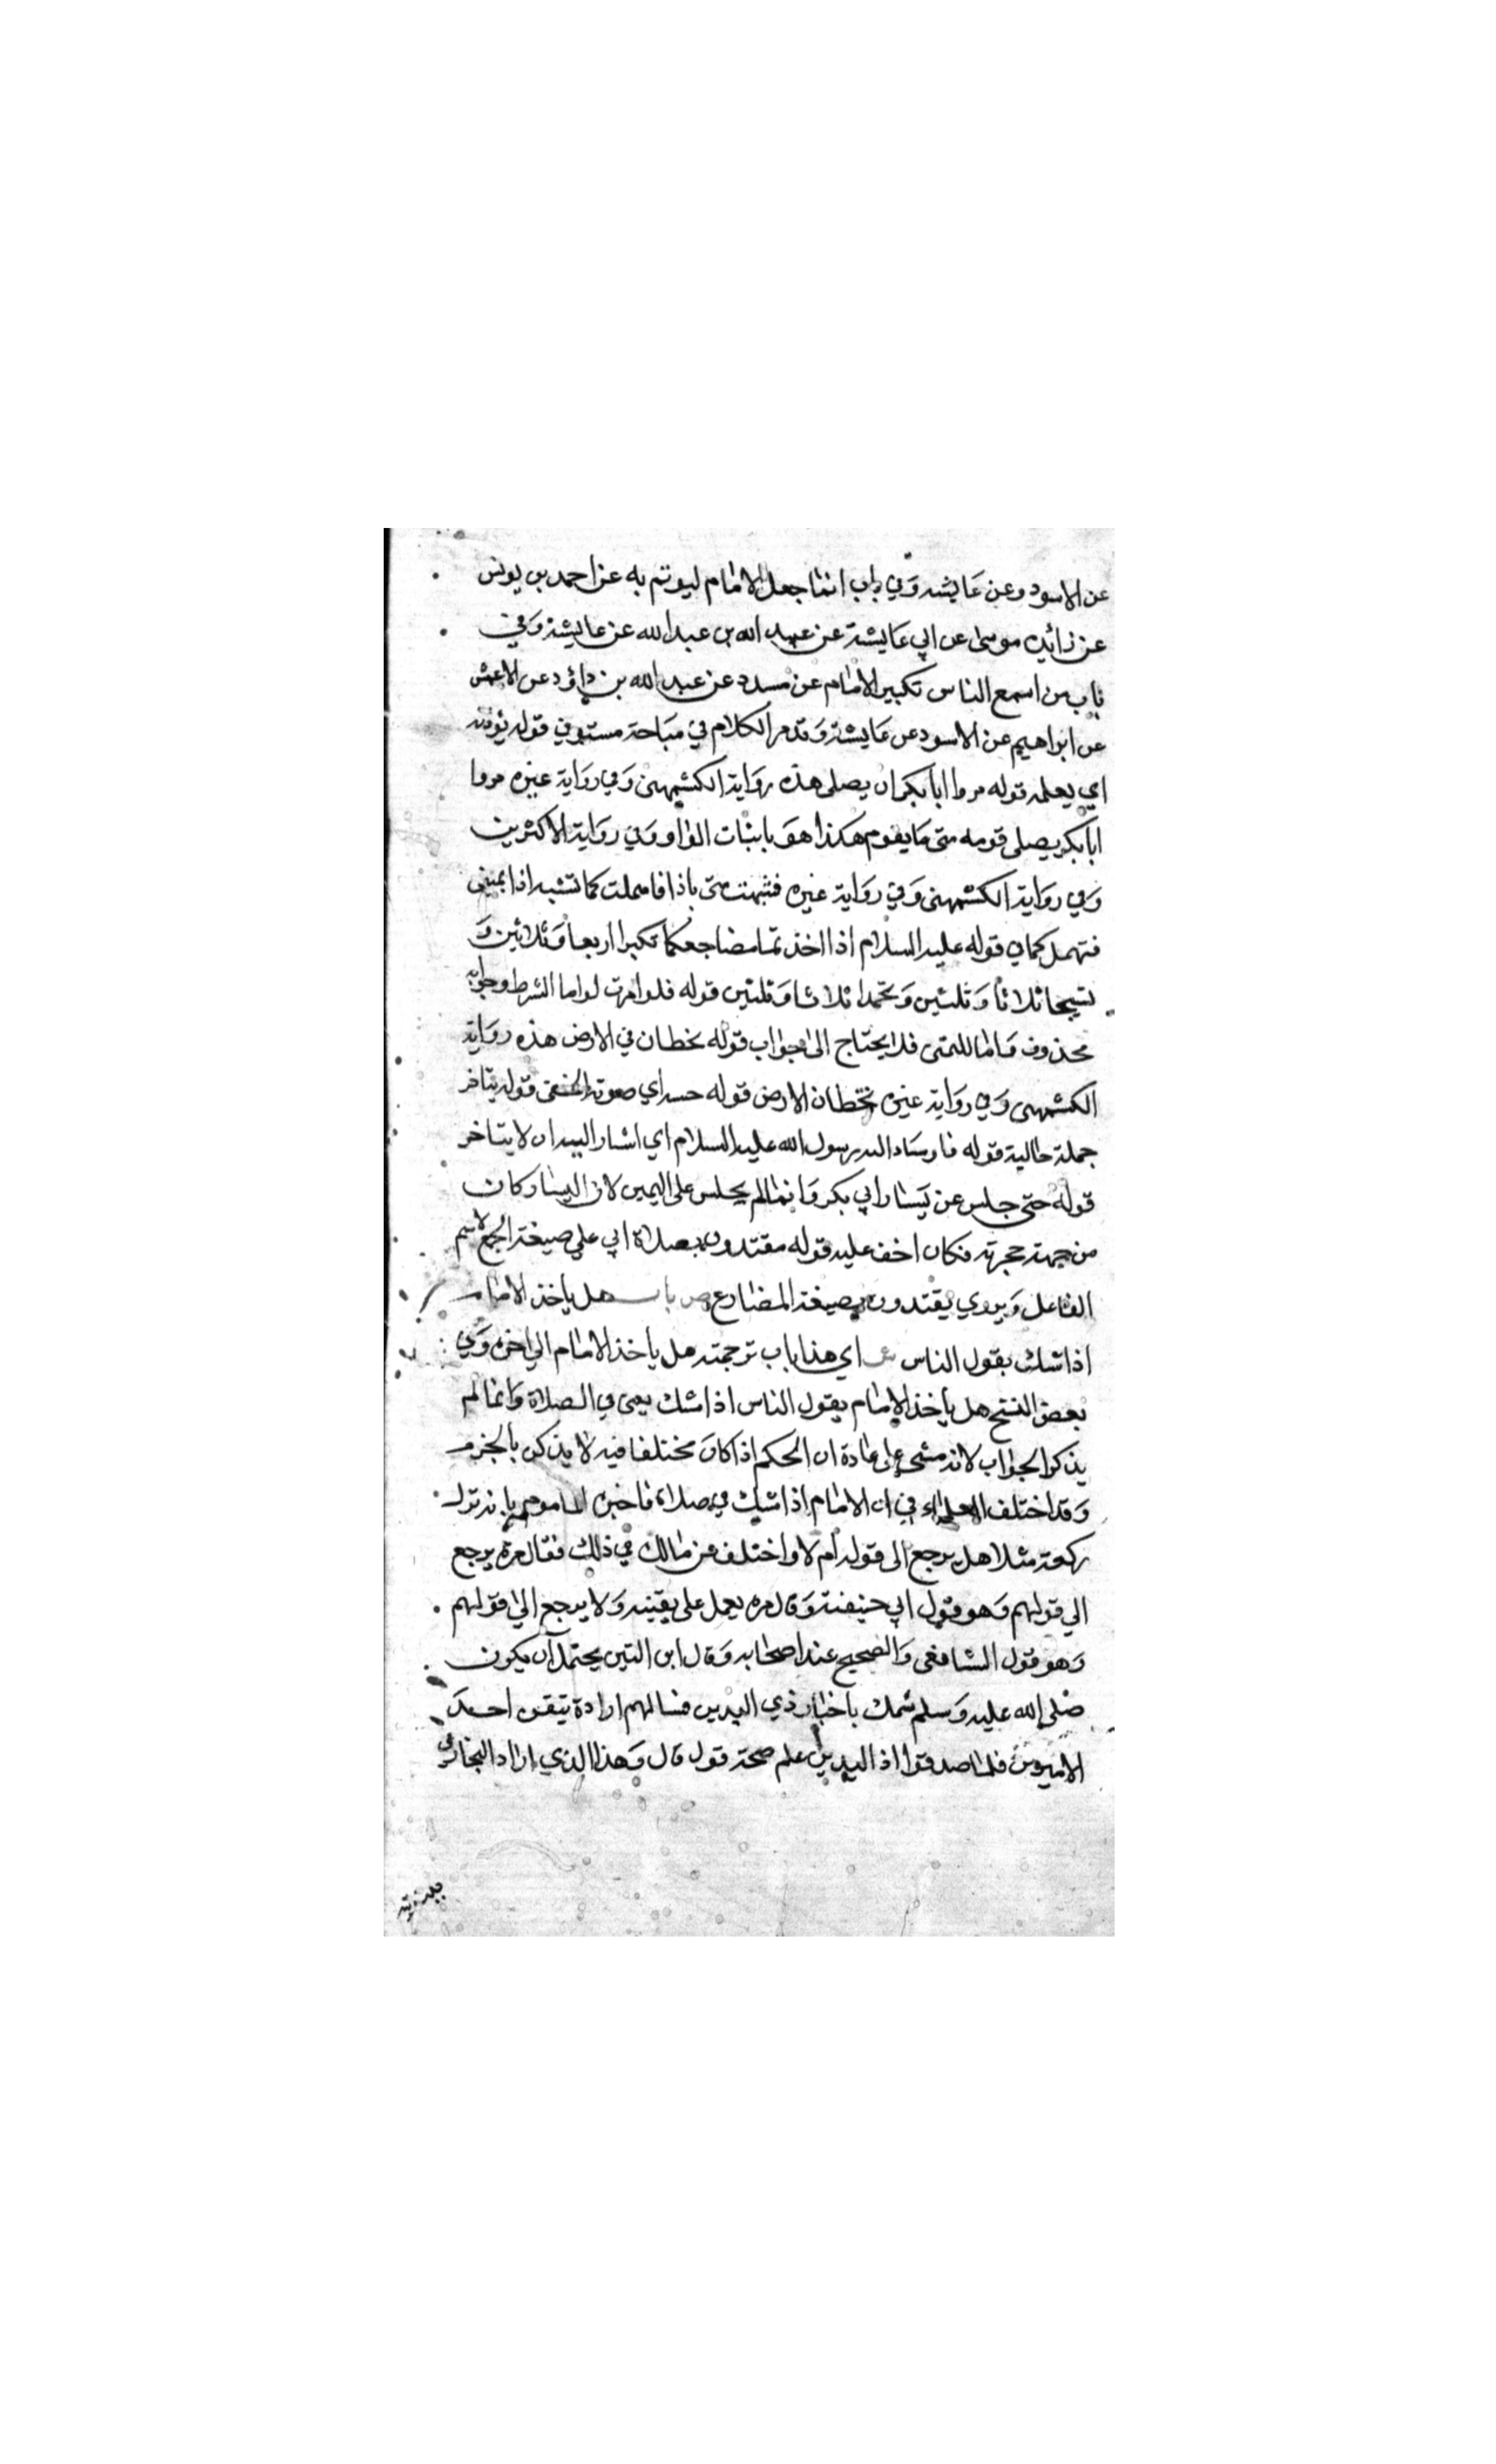 عن الاسود وعن عايشه وفي باب انما جعل الامام ليوتم به عن احمد بن يونس
عن زائده موسى عن ابي عايشة عن عبيد الله بن عبد الله عن عايشة وفي
باب من اسمع الناس تكبير الامام عن مسدد عن عبد الله بن داؤد عن الاعمش
عن ابراهيم عن الاسود عن عايشة وقد مر الكلام في مباحثه مستوفي قوله يؤذنه
اي يعلمه قوله مروا ابا بكر ان يصلي هذه رواية الكشميهني وفي رواية غيره مروا
ابا بكر يصلي قومه متى ما يقوم هكذا هو باثبات الواو وفي رواية الاكثرين
وفي رواية الكشمهني وفي رواية غيره فشبهت متى باذا فاهملت كما تشبه اذا بمتى
فتهمل كما في قوله عليه السلام اذا اخذتما مضاجعكما تكبرا اربعا وثلاثين و
تسبحا ثلاثا وثلثين وتحمدا ثلاثا وثلثين قوله فلو امرت لو اما الشرط وجوابه
محذوف واما للتمنى فلا يحتاج الى جواب قوله يخطان في الارض هذه رواية
الكشمهني وفي رواية غيره تخطان الارض قوله حسه اي صوته الخفي قوله يتاخر
جملة حالية قوله فاومـاء اليه رسول الله عليه السلام اي اشار اليه ان لا يتاخر
قوله حتى جلس عن يسار ابي بكر وانما لم يجلس على اليمين لان اليسار كان
من جهة حجرته فكان اخف عليه قوله مقتدون بصلاة ابي على صيغة الجمع لاسم
الفاعل ويروي يقتدون بصيغة المضارع ص باب هل ياخذ الامام
اذا شك بقول الناس ش اي هذا باب ترجمته هل ياخذ الامام الي اخره وفي
بعض النسخ هل ياخذ الامام بقول الناس اذا شك يعني في الصلاة وانما لم
يذكر الجواب لانه مشى على عادة ان الحكم اذا كان مختلفا فيه لا يذكر بالجزم
وقد اختلف العلماء في ان الامام اذا شك في صلاة فاخبره المامومم بانه ترك
ركعة مثلا هل يرجع الى قوله ام لا واختلف عن مالك في ذلك فقال مرة يرجع
الي قولهم وهو قول ابي حنيفة وقال مره يعمل على يقينه ولا يرجع الي قولهم
وهو قول الشافعى والصحيح عند اصحابه وقال ابن التين يحتمل ان يكون
صلى الله عليه وسلم شك باخبار ذي اليدين فسالهم ارادة تيقن احد
الامرين فلما صدقوا ذا اليدين علم صحة قول قال وهذا الذي اراد البخاري